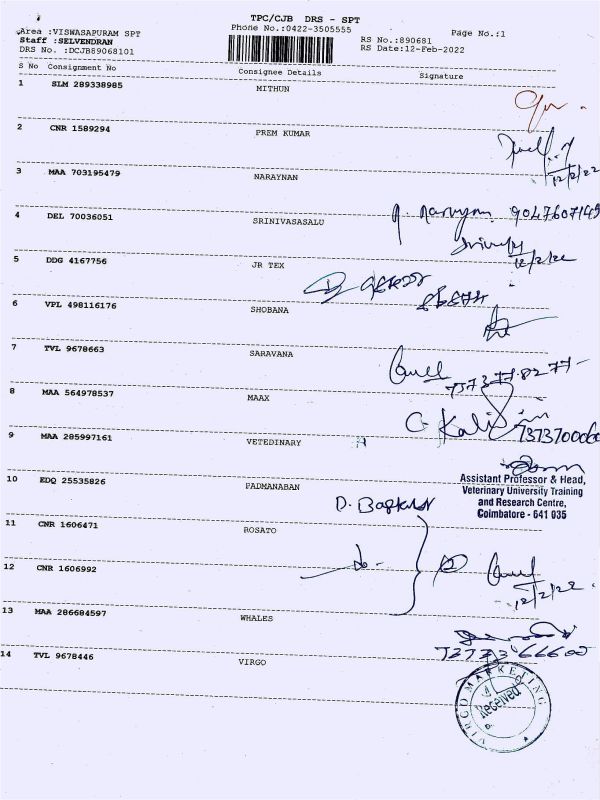 TPC/CJB DRS - SPT
Area :VISWASAPURAM SPT
Phone No.:0422-3505555
Page No.:1
Staff :SELVENDRAN
RS No.:890681
DRS No. :DCJB89068101
RS Date:12-Feb-2022
S No Consignment No Consignee Details Signature
1 SLM 289338985 MITHUN
2 CNR 1589294 PREM KUMAR
12/2/22
3 MAA 703195479 NARAYNAN
9047607145
4 DEL 70036051 SRINIVASASALU
12/2/22
5 DDG 4167756 JR TEX
6 VPL 498116176 SHOBANA
7 TVL 9678663 SARAVANA
8 MAA 564978537 MAAX
C. Kali
9 MAA 285997161 VETEDINARY
Assistant Professor & Head,
Veterinary University Training
and Research Centre,
Coimbatore - 641 035
10 EDQ 25535826 PADMANABAN
D. Baskar
11 CNR 1606471 ROSATO
12 CNR 1606992
12/2/22
13 MAA 286684597 WHALES
14 TVL 9678446 VIRGO
VIRGO MARKETING
Received